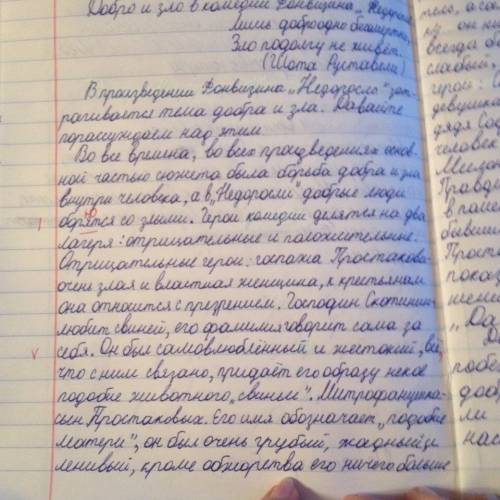 Добро и зло в комедии Фонвизина „Недоросль
Лишь добро одно бессмертно,
Зло подолгу не живёт.
(Шота Руставели)
В произведении Фонвизина „Недоросль" зат-
рагивается тема добра и зла. Давайте
порассуждаем над этим.
Во все времена, во всех произведениях основ-
ной частью сюжета была борьба добра и зла
внутри человека, а в „Недоросли" добрые люди
борятся со злыми. Герои комедии делятся на два
лагеря: отрицательные и положительные.
Отрицательные герои: госпожа Простакова-
очень злая и властная женщина, к крестьянам
она относится с презрением. Господин Скотинин-
любит свиней, его фамилия говорит сама за
себя. Он был самовлюблённый и жестокий, всё,
что с ним связано, придаёт его образу некое
подобие животного „свиньи". Митрофанушка-
сын Простаковых. Его имя обозначает „подобие
матери", он был очень грубый, жадный и
ленивый, кроме обжорства его ничего больше
тело, а со
ну он н
всегда б
слабый,
герои:
девушка
дядя Со
человек
Милон
Правд
в поме
бывший
Прост
пока
имени
„Да
побе
доб
ли
нас